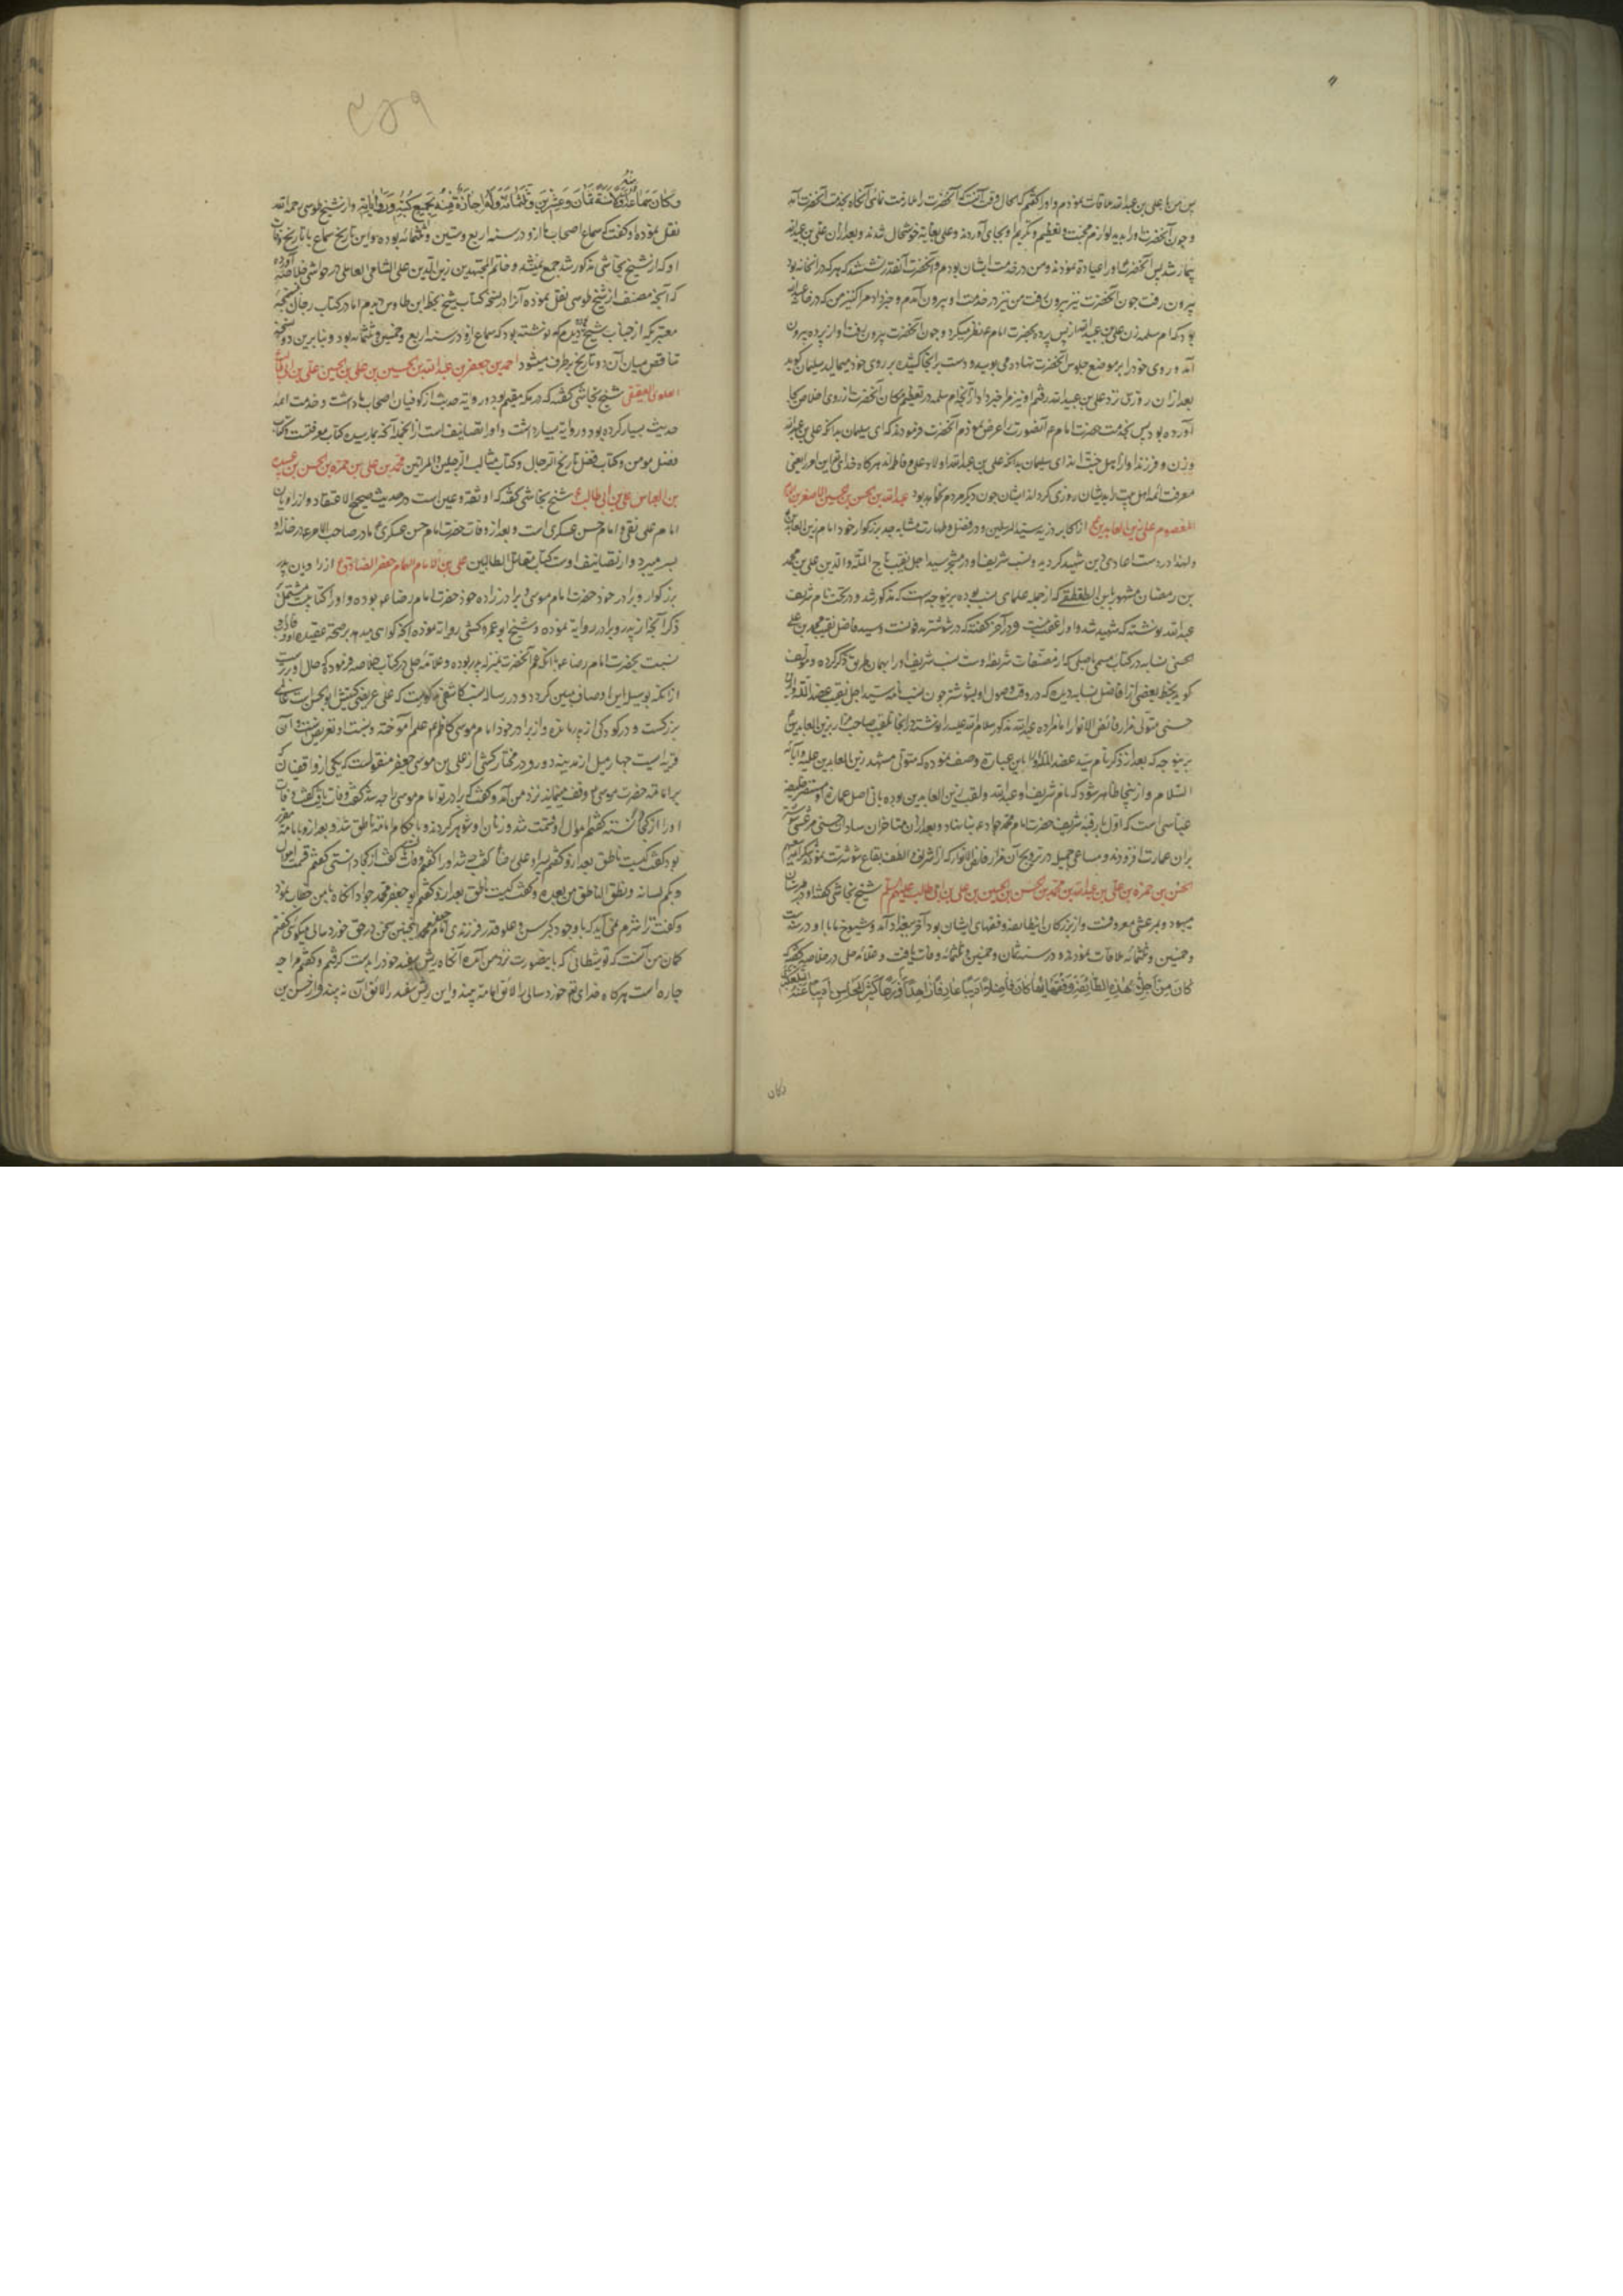 پس من با علی بن عبدالله ملاقات نمودم و او را گفتم که حال وقت آنست که آنحضرت را ملازمت نمائی آنکاه بخدمت آنحضرت آمد
و چون آنحضرت او را بدید لوازم محبت و تعظیم و تکریم او بجای آوردند و علی بغایة خوشحال شدند و بعد از آن علی بن عبدالله
بیمار شد پس آنحضرت او را عیادة نمودند و من در خدمت ایشان بودم و آنحضرت آنقدر نشستند که هر که در آنخانه بود
بیرون رفت چون آنحضرت نیز بیرون رفت من نیز در خدمت او بیرون آمدم و خبر داد مرا کنیز من که در خانه
بود که ام سلمه زن علی بن عبیدالله از پس پرده بحضرت امام نظر میکرد و چون آنحضرت بیرون رفت او از پرده بیرون
آمد و روی خود را بر موضع جلوس آنحضرت نهاد و می بوسید و دست بر آنجا کشیده بر روی خود میمالید سلیمان کوید
بعد از آن روز نزد علی بن عبیدالله رفتم او نیز مرا خبر داد از آنچه ام سلمه در تعظیم مکان آنحضرت از روی اخلاص بجا
آورده بود پس بخدمت حضرت امام آنصورت را عرض نمودم آنحضرت فرمودند که ای سلیمان بدانکه علی بن عبدالله
و زن و فرزند او از اهل جنت اند ای سلیمان بدانکه علی بن عبدالله اولاد علی و فاطمه اند هرکاه خدای تعالی این امر یعنی
معرفت ائمه اهل بیت را بدیشان روزی کرداند ایشان چون دیکر مردم نخواهند بود عبدالله بن الحسن بن الحسین الاصغر بن
المعصوم علی زین العابدین از اکابر ذریه سید المرسلین و در فضل و طهارت مشابه جد بزرکوار خود امام زین العابدین
و لهذا در دست اعادی دین شهید کردید و نسب شریف او در مشجر سید اجل نقیب تاج الملة و الدین علی بن محمد
بن رمضان مشهور بابن الطقطقی که از جمله علمای نسب بوده برینوجه است که مذکور شد و در تحت نام شریف
عبدالله نوشته که شهید شد و او را عقب نیست و در آخر گفته که در شوشتر مدفونست و سید فاضل نقیب محمد بن علی
الحسنی نسابه در کتاب مسمی باصیلی که از مصنفات شریفه اوست نسب شریف او را بهمان طریق ذکر کرده و مؤلف
کوید بخط بعضی از افاضل نسابه دیدم که در وقت وصول او بشوشتر چون نسب نامه سید اجل نقیب عضد الدولة
حسنی متولی مزار فائض الانوار امامزاده عبدالله مذکور سلام الله علیه را نوشته در آنجا تلقیب صاحب مزار بزین العابدین
برینوجه که بعد از ذکر نام سید عضد الدوله باین عبارت وصف نموده که متولی مشهد زین العابدین علیه و آبائه
السلام و از اینجا ظاهر میشود که نام شریف او عبدالله و لقب زین العابدین بوده بانی اصل عمارة او مستنصر خلیفه
عباسی است که اول بار قبه شریف حضرت امام محمد جواد بنا نهاد و بعد از آن متاخران سادات حسینی مرعشی شوشتر
بران عمارت افزودند و مساعی جمیل در ترویج آن مزار فائض الانوار که از اشرف و الطف بقاع شوشترست نموده اند
الحسن بن حمزه بن علی بن عبدالله بن محمد بن الحسن بن الحسین بن علی بن ابی طالب علیهم السلام شیخ نجاشی گفته که او در طبرستان
میبود و بمرعشی معروفست و از بزرکان اینطائفه و فقهای ایشان بود آخر ببغداد آمد و شیوخ ما با او در سنه ست
و خمسین و ثلثمائه ملاقات نمودند و در سنه ثمان و خمسین و ثلثمائه وفات یافت و علامه حلی در خلاصه گفته که
کان من اجلاء هذه الطائفة و فقهائها کان فاضلا دینا عارفا زاهدا ورعا کثیر المحاسن ادیبا
وکان
٩٥٩
وکان سماعه منه سنة ثمان و عشرین و ثلثمائة و له اجازة منه بجمیع کتبه و روایاته و از شیخ طوسی رحمه الله
نقل نموده که او گفت که سماع اصحاب ما ازو در سنه اربع و ستین و ثلثمائه بوده و این تاریخ سماع با تاریخ وفات
او که از شیخ نجاشی مذکور شد جمع نمیشد و خاتم المجتهدین زین الدین علی الشامی العاملی در حواشی خلاصه آورده
که آنچه مصنف از شیخ طوسی نقل نموده آنرا در نسخه کتاب شیخ بخط ابن طاوس دیدم اما در کتاب رجال نسخه
معتبر دیکر از جناب شیخ دیدم که نوشته بود که سماع ازو در سنه اربع و خمسین و ثلثمائه بود و بنا برین دو نسخه
تناقض میان آن دو تاریخ برطرف میشود احمد بن جعفر بن عبدالله بن الحسین بن علی بن الحسین علی بن ابی طالب
العلوی العقیقی شیخ نجاشی گفته که در مکه مقیم بود و روایة حدیث از کوفیان اصحاب ما داشت و خدمت ائمه
حدیث بسیار کرده بود و روایة بسیار داشت و او را تصانیف است از آنجمله آنچه بما رسیده کتاب معرفتست و کتاب
فضل مومن و کتاب تاریخ الرجال و کتاب مثالب الرجلین و المراتین محمد بن علی بن حمزه بن الحسن بن عبیدالله
بن العباس علی بن ابی طالب شیخ نجاشی گفته که او ثقه و عین است در حدیث صحیح الاعتقاد و از راویان
امام علی نقی و امام حسن عسکری است و بعد از وفات حضرت امام حسن عسکری مادر صاحب الامر در خانه او
بسر میبرد و از تصانیف اوست کتاب مقاتل الطالبین علی بن الامام الهمام جعفر الصادق از راویان پدر
بزرکوار و برادر خود حضرت امام موسی و برادر زاده خود حضرت امام رضا بوده و او را کتابیست مشتمل
ذکر آنچه از پدر و برادر روایة نموده و شیخ ابو عمرو کشی روایة نموده آنچه کواهی میدهد بر صحة عقیده او و تأدب
نسبت بحضرت امام رضا با آنکه عم آنحضرت بمنزله پدر بوده و علامه حلی در کتاب خلاصه فرموده که حال او برتر است
از آنکه بوسیله این اوصاف مبین کردد و در رساله نسب کاشغی مذکورست که علی عریضی کنیتش ابوالحسن است عالمی
بزرکست و در کودکی از پدر مانده و از برادر خود امام موسی کاظم علم آموخته و نسبت او بعریض است و آن
قریه ایست چهار میل از مدینه دور و در مختار کشی از علی بن موسی جعفر منقولست که یکی از واقفیان که
بر امامة حضرت موسی وقف مینمایند نزد من آمد و گفت که برادر تو امام موسی را چه شد گفتم وفات یافت گفت وفات
او را از کجا دانسته گفتم اموال او قسمت شد و زنان او شوهر کردند و باحکام امامة ناطق شد و بعد ازو بامامة مقرر
بود گفت کیست ناطق بعد ازو گفتم پسر او علی رضا گفت چه شد او را گفتم وفات یافت گفت از کجا دانستی گفتم قسمت اموال
و نکح نسائه و نطق الناطق من بعده و گفت کیست ناطق بعد ازو گفتم ابو جعفر محمد جواد آنکاه با من خطاب نمود
و گفت ترا شرم نمی آید که با وجود کبر سن و علو قدر فرزندی امام جعفر محمد اینچنین سخن در حق خورد سالی میکوئی گفتم
کمان من آنست که تو شیطانی که باینصورت نزد من آمده آنکاه ریش سفید خود را بدست کرفتم و گفتم مرا چه
چاره است هرکاه خدای تعالی خورد سالی را لائق امامة بیند و این ریش سفید را لائق آن نه بیند و از حسن بن